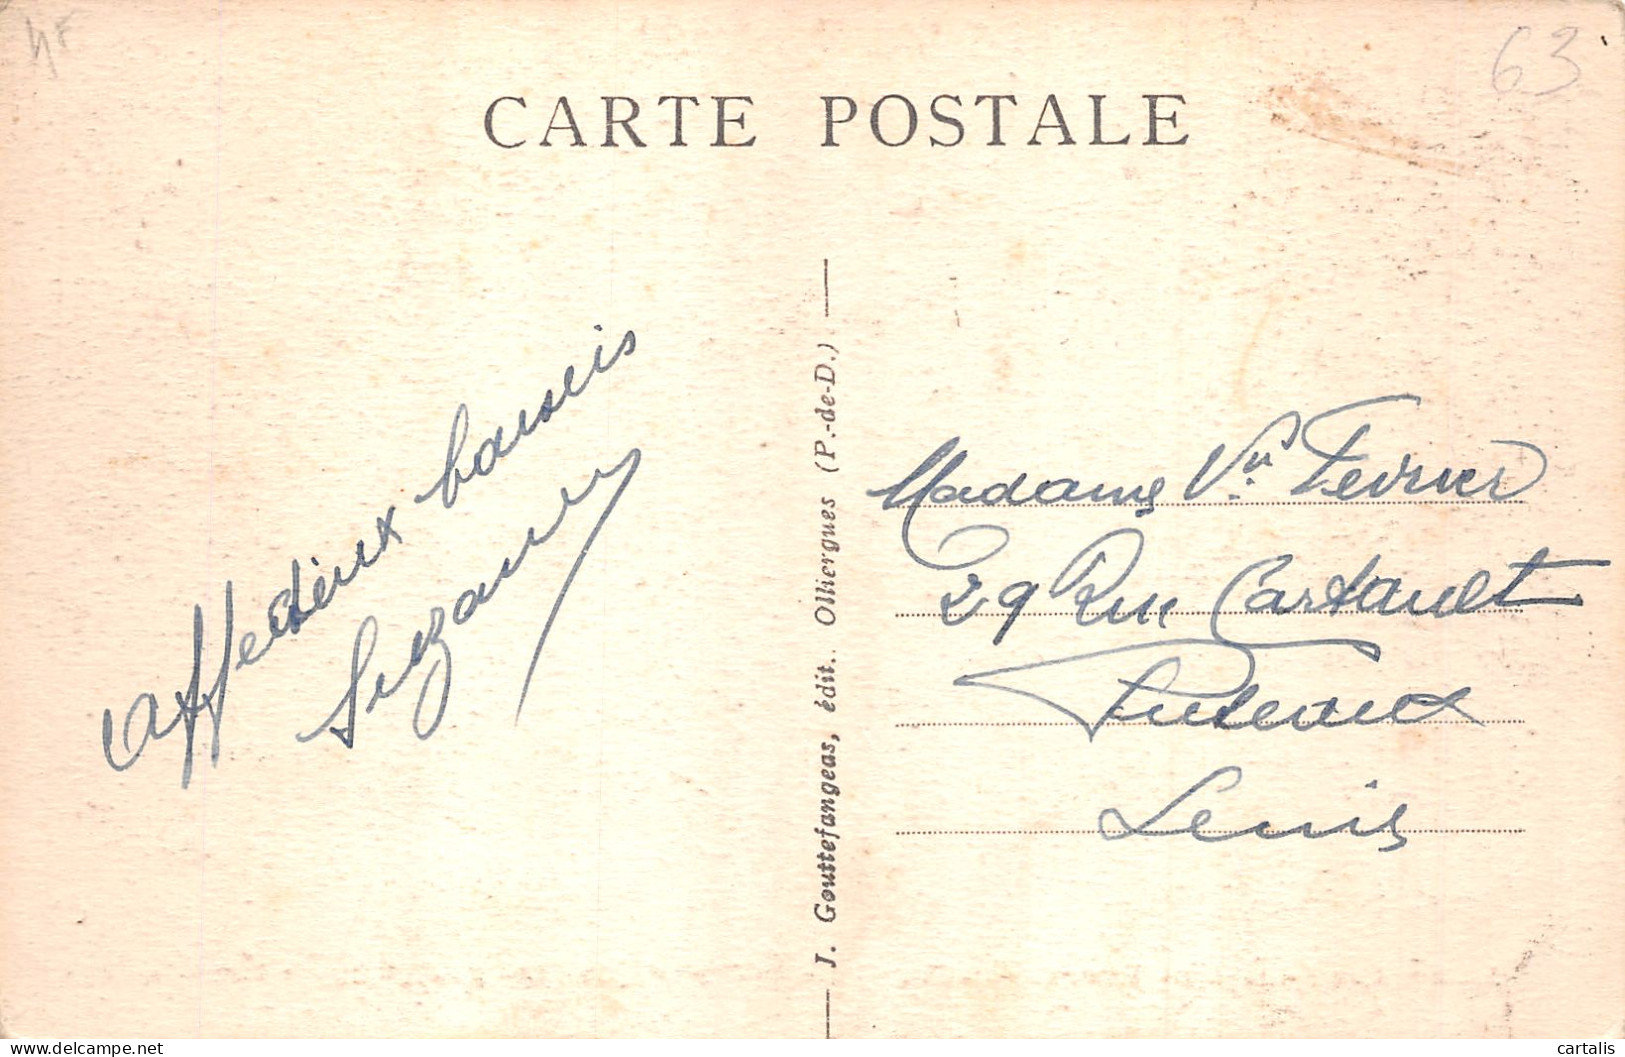 4F
63
CARTE POSTALE
Affectueux baiseis
Suzanne
J. Gouttefangeas, édit.. Olliergues (P.-de-D.)
Madame Vve Fevrier
29 Rue Cartault
Puteaux
Seine
delcampe.net
cartalis